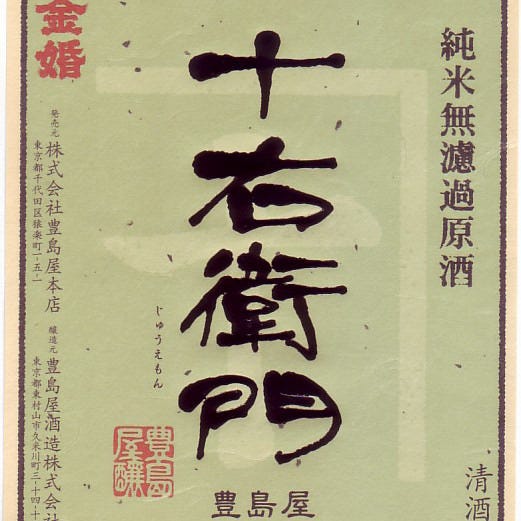 純米無濾過原酒
清酒
十右衛門
じゅうえもん
豊島屋
豊島屋醸
金婚
発売元 株式会社豊島屋本店
東京都千代田区猿楽町一-五-一
醸造元 豊島屋酒造株式会社
東京都東村山市久米川町三-十四-十